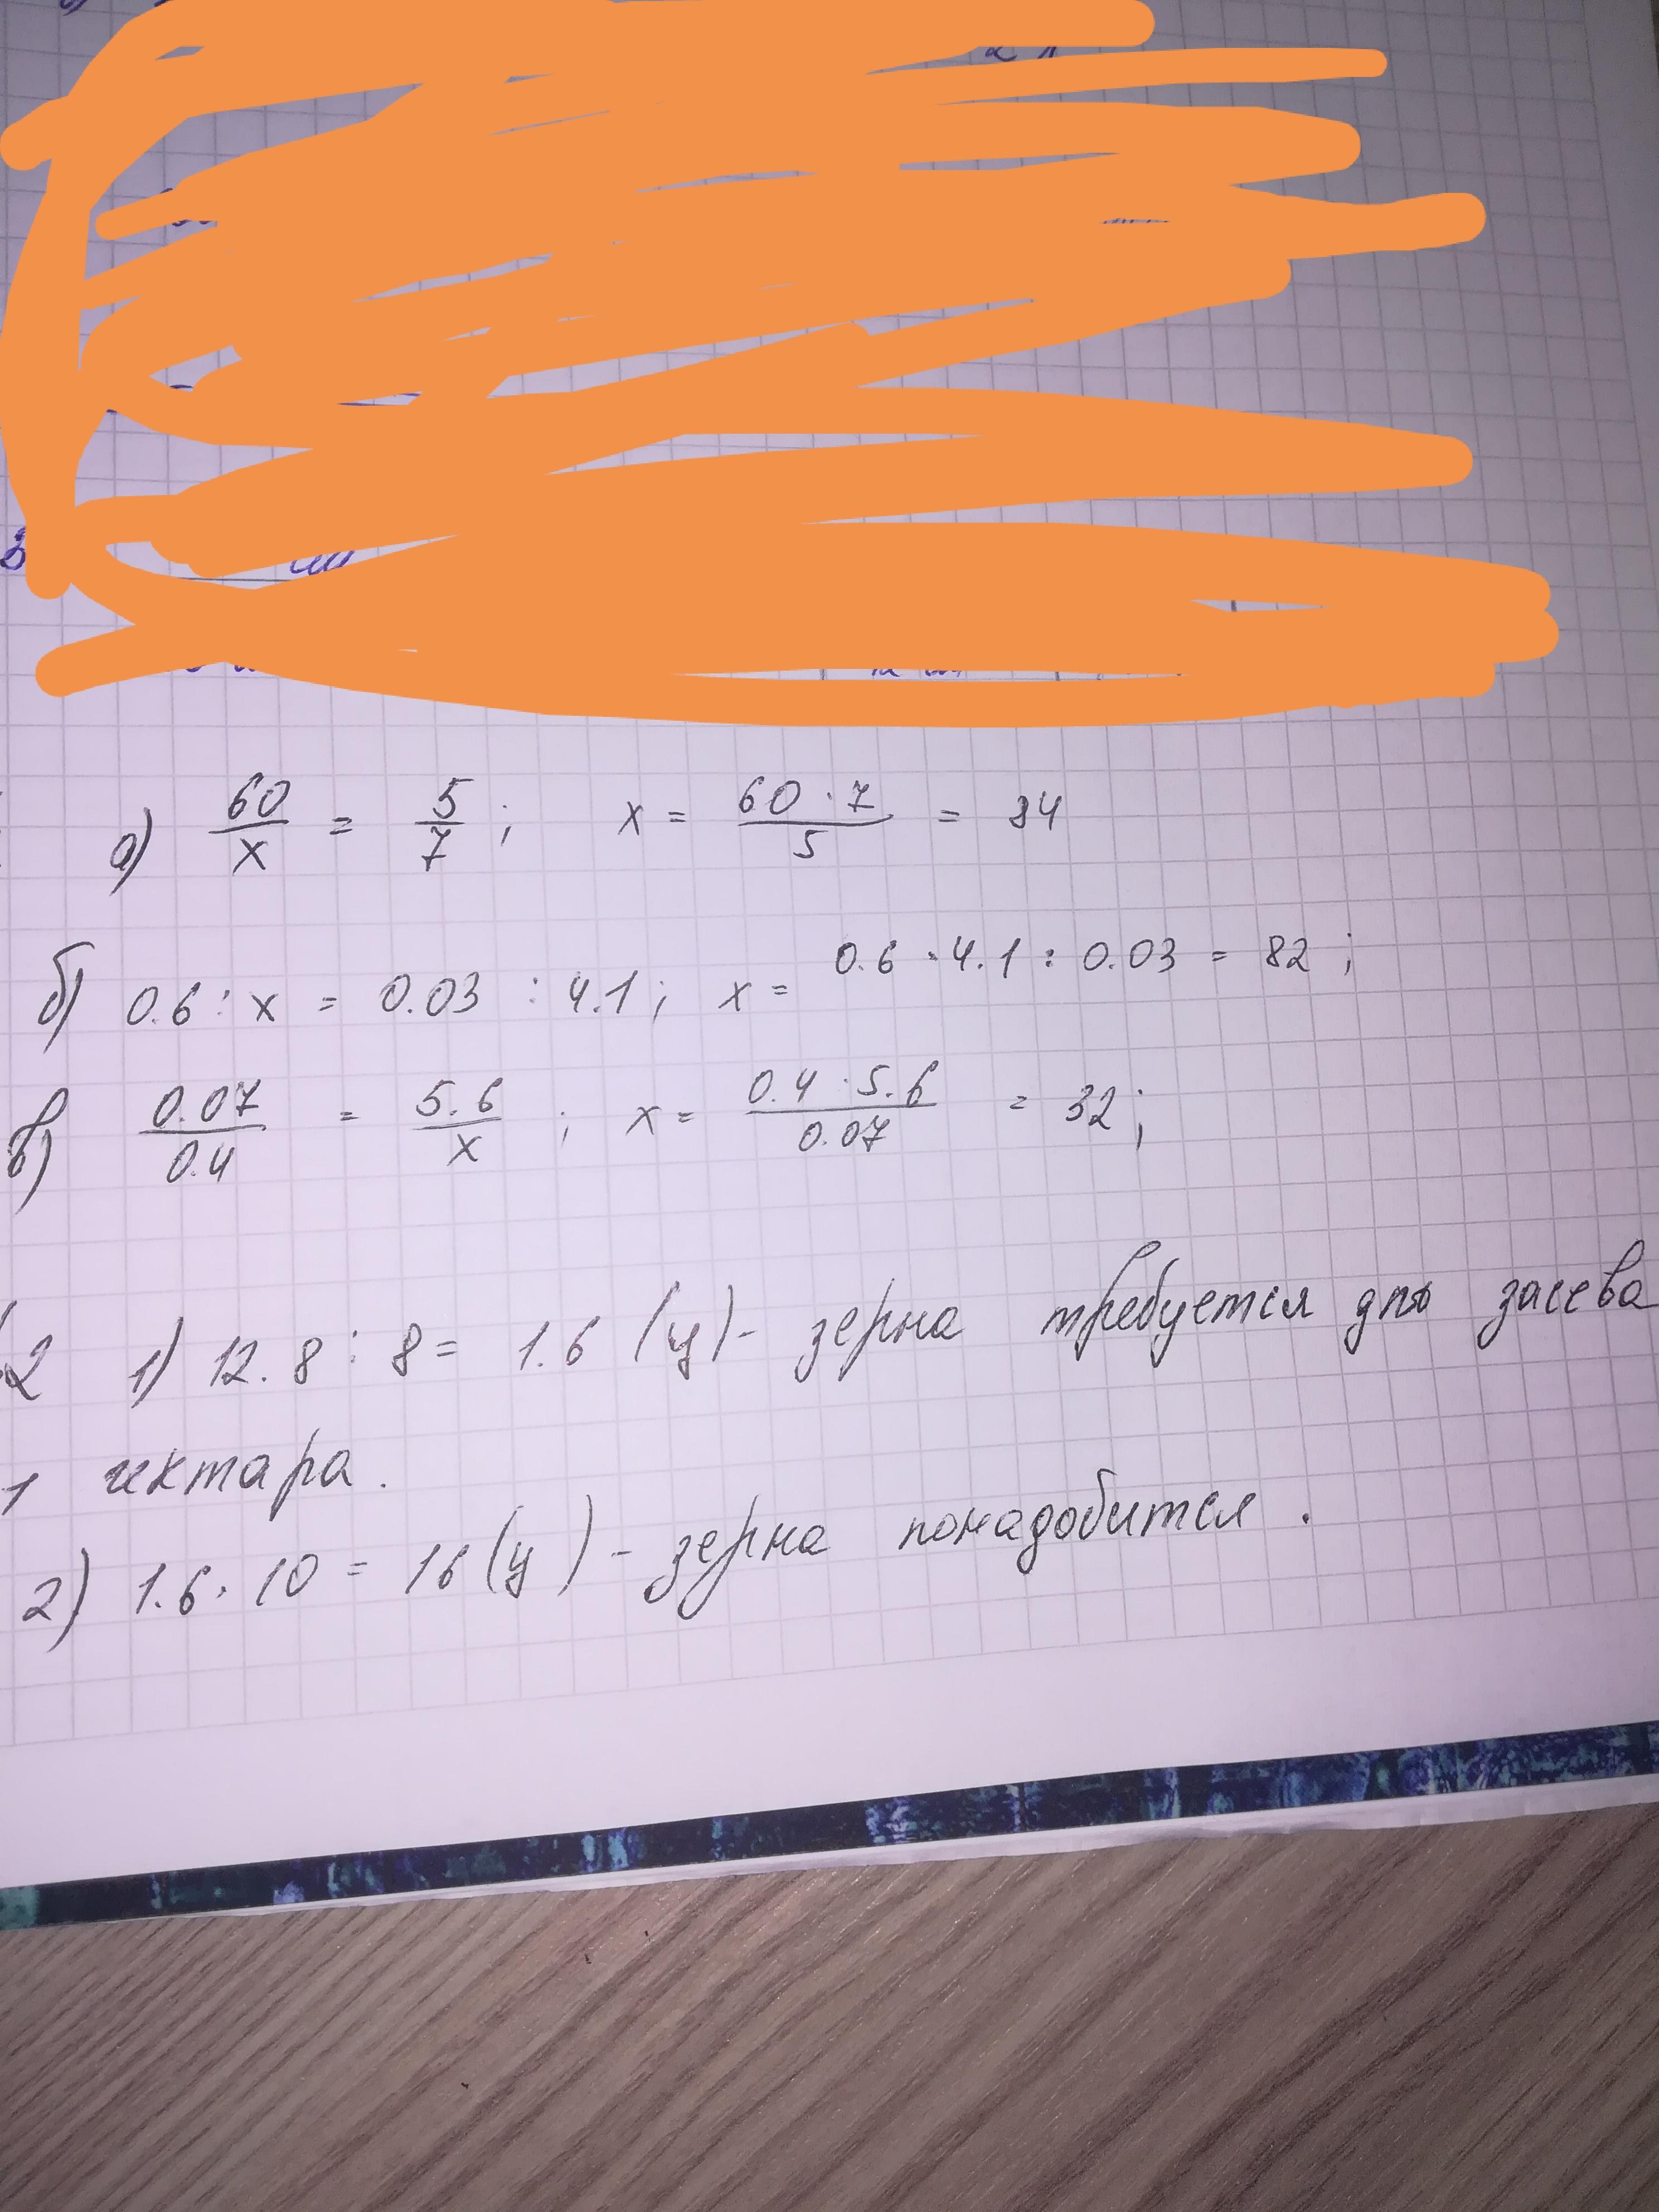 а) 60/x = 5/7; x = 60 · 7/5 = 84
б) 0.6 : x = 0.03 : 4.1; x = 0.6 · 4.1 : 0.03 = 82;
в) 0.07/0.4 = 5.6/x; x = 0.4 · 5.6/0.07 = 32;
2 1) 12.8 : 8 = 1.6 (ц) - зерна требуется для засева
1 гектара.
2) 1.6 · 10 = 16 (ц) - зерна понадобится.